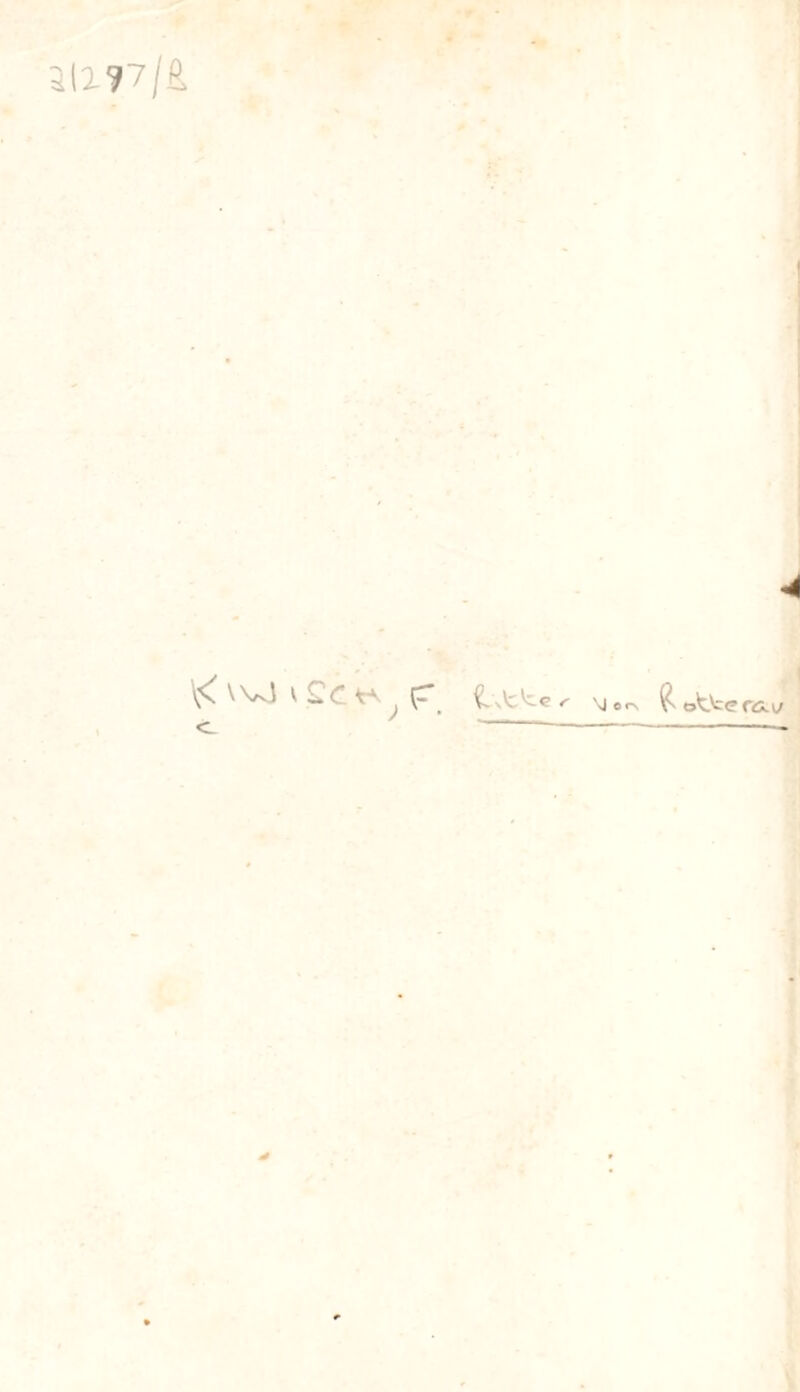 31297/B
KIWISCH, F. Ritter von Rotterau